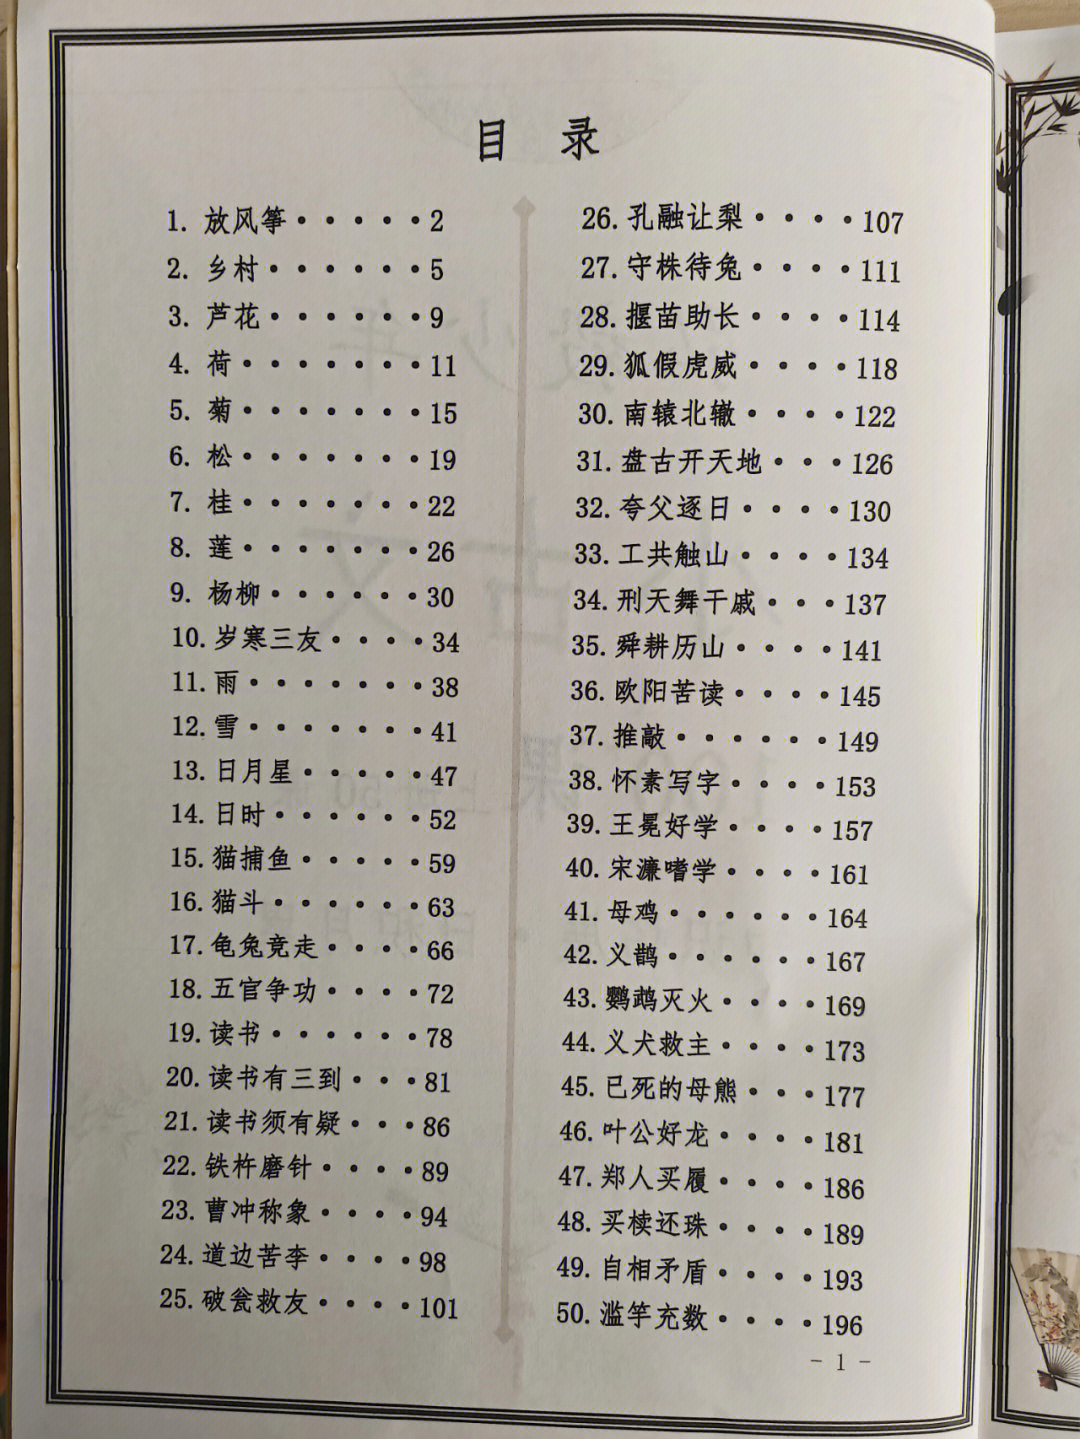 目 录
1. 放风筝·····2
2. 乡村······5
3. 芦花······9
4. 荷·······11
5. 菊·······15
6. 松·······19
7. 桂·······22
8. 莲·······26
9. 杨柳······30
10. 岁寒三友····34
11. 雨·······38
12. 雪·······41
13. 日月星·····47
14. 日时······52
15. 猫捕鱼·····59
16. 猫斗······63
17. 龟兔竞走····66
18. 五官争功····72
19. 读书······78
20. 读书有三到···81
21. 读书须有疑···86
22. 铁杵磨针····89
23. 曹冲称象····94
24. 道边苦李····98
25. 破瓮救友····101
26. 孔融让梨····107
27. 守株待兔····111
28. 揠苗助长····114
29. 狐假虎威····118
30. 南辕北辙····122
31. 盘古开天地···126
32. 夸父逐日····130
33. 工共触山····134
34. 刑天舞干戚···137
35. 舜耕历山····141
36. 欧阳苦读····145
37. 推敲······149
38. 怀素写字····153
39. 王冕好学····157
40. 宋濂嗜学····161
41. 母鸡······164
42. 义鹊······167
43. 鹦鹉灭火····169
44. 义犬救主····173
45. 已死的母熊···177
46. 叶公好龙····181
47. 郑人买履····186
48. 买椟还珠····189
49. 自相矛盾····193
50. 滥竽充数····196
- 1 -